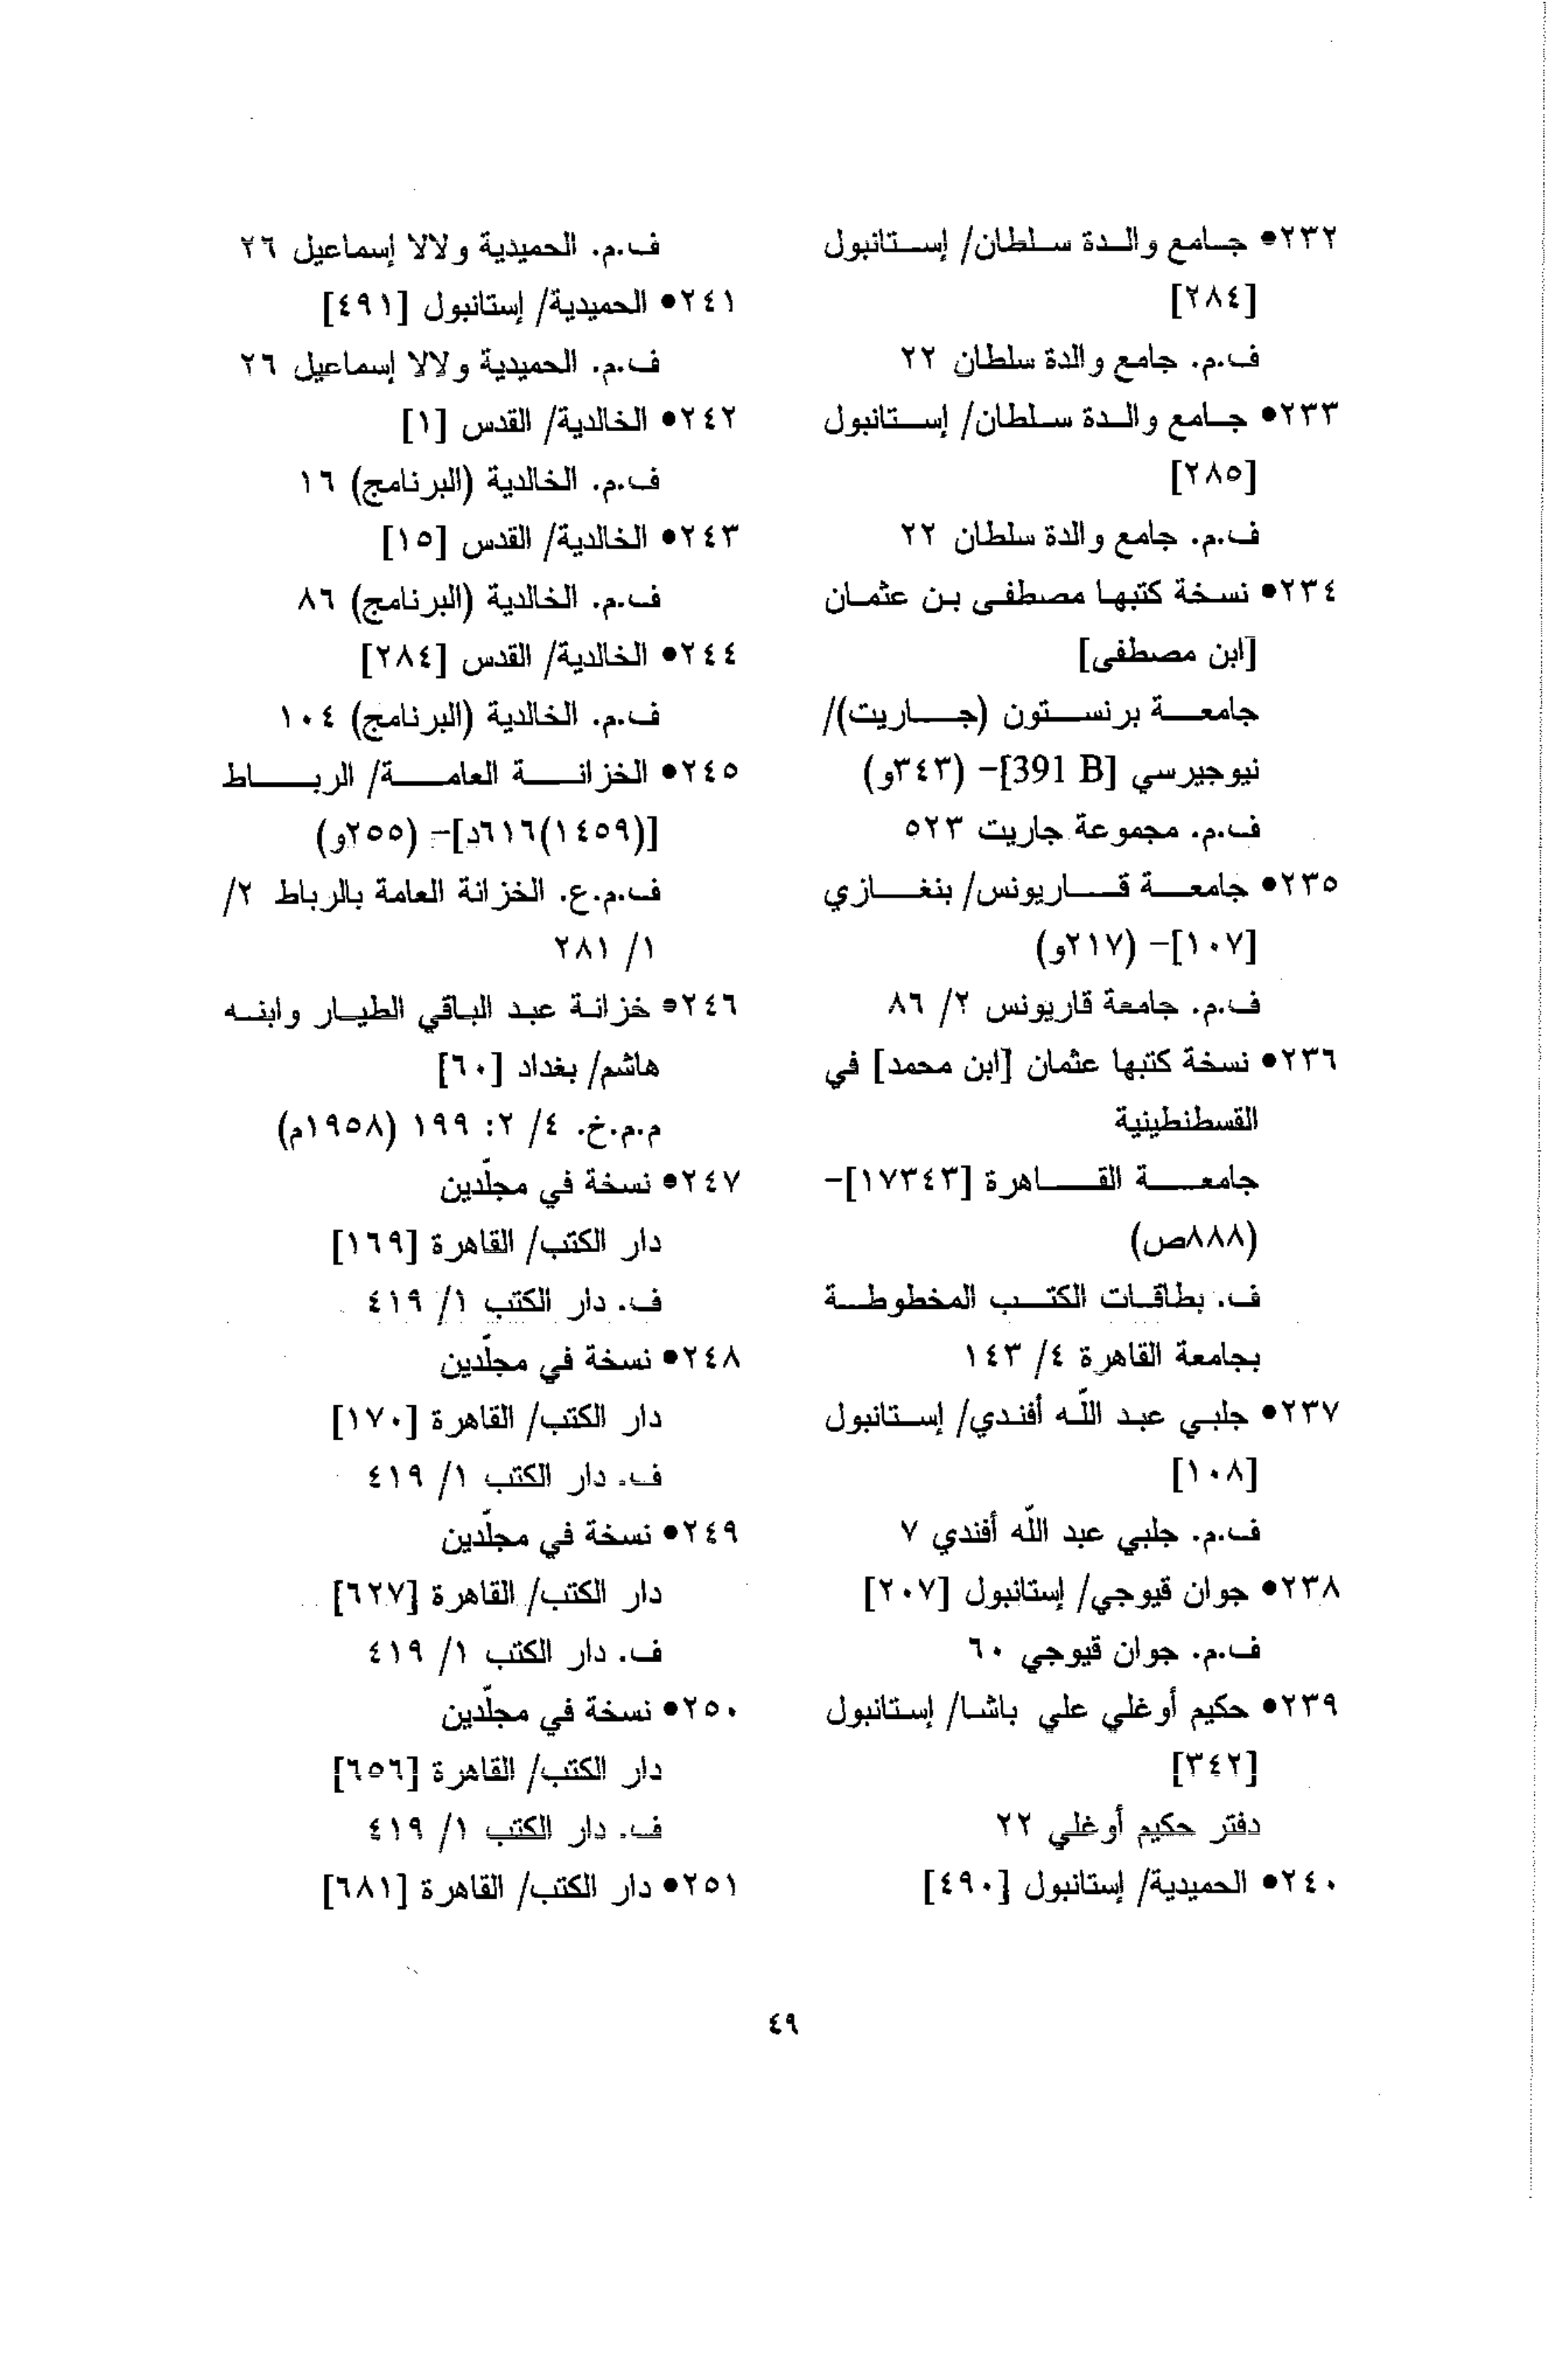 ٢٣٢• جامع والدة سلطان/ إستانبول
[٢٨٤]
ف.م. جامع والدة سلطان ٢٢
٢٣٣• جامع والدة سلطان/ إستانبول
[٢٨٥]
ف.م. جامع والدة سلطان ٢٢
٢٣٤• نسخة كتبها مصطفى بن عثمان
[ابن مصطفى]
جامعة برنستون (جاريت)/
نيوجيرسي [391 B]- (٣٤٣و)
ف.م. مجموعة جاريت ٥٢٣
٢٣٥• جامعة قاريونس/ بنغازي
[١٠٧]- (٢١٧و)
ف.م. جامعة قاريونس ٢/ ٨٦
٢٣٦• نسخة كتبها عثمان [ابن محمد] في
القسطنطينية
جامعة القاهرة [١٧٣٤٣]-
(٨٨٨ص)
ف. بطاقات الكتب المخطوطة
بجامعة القاهرة ٤/ ١٤٣
٢٣٧• جلبي عبد اللّه أفندي/ إستانبول
[١٠٨]
ف.م. جلبي عبد اللّه أفندي ٧
٢٣٨• جوان قيوجي/ إستانبول [٢٠٧]
ف.م. جوان قيوجي ٦٠
٢٣٩• حكيم أوغلي علي باشا/ إستانبول
[٣٤٢]
دفتر حكيم أوغلي ٢٢
٢٤٠• الحميدية/ إستانبول [٤٩٠]
ف.م. الحميدية ولالا إسماعيل ٢٦
٢٤١• الحميدية/ إستانبول [٤٩١]
ف.م. الحميدية ولالا إسماعيل ٢٦
٢٤٢• الخالدية/ القدس [١]
ف.م. الخالدية (البرنامج) ١٦
٢٤٣• الخالدية/ القدس [١٥]
ف.م. الخالدية (البرنامج) ٨٦
٢٤٤• الخالدية/ القدس [٢٨٤]
ف.م. الخالدية (البرنامج) ١٠٤
٢٤٥• الخزانة العامة/ الرباط
[(١٤٥٩)٦١٦د]- (٢٥٥و)
ف.م.ع. الخزانة العامة بالرباط ٢/
١/ ٢٨١
٢٤٦• خزانة عبد الباقي الطيار وابنه
هاشم/ بغداد [٦٠]
م.م.خ. ٤/ ٢: ١٩٩ (١٩٥٨م)
٢٤٧• نسخة في مجلّدين
دار الكتب/ القاهرة [١٦٩]
ف. دار الكتب ١/ ٤١٩
٢٤٨• نسخة في مجلّدين
دار الكتب/ القاهرة [١٧٠]
ف. دار الكتب ١/ ٤١٩
٢٤٩• نسخة في مجلّدين
دار الكتب/ القاهرة [٦٢٧]
ف. دار الكتب ١/ ٤١٩
٢٥٠• نسخة في مجلّدين
دار الكتب/ القاهرة [٦٥٦]
ف. دار الكتب ١/ ٤١٩
٢٥١• دار الكتب/ القاهرة [٦٨١]
٤٩